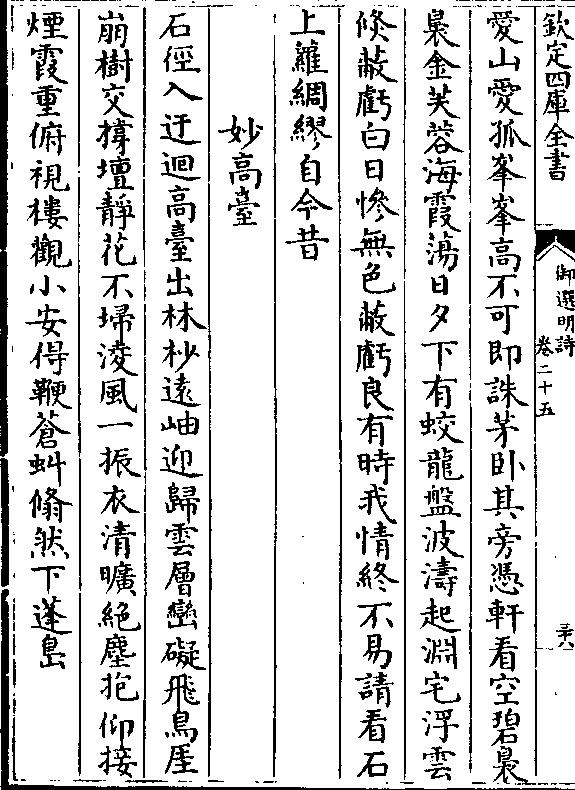 欽定四庫全書
御選明詩
卷二十五
三六
愛山愛孤峯峯高不可即誅茅卧其旁憑軒看空碧裊
裊金芙蓉海霞蕩日夕下有蛟龍盤波濤起淵宅浮雲
倐蔽虧白日慘無色蔽虧良有時我情終不易請看石
上蘿綢繆自今昔
妙高臺
石徑入迂迴高臺出林杪遠岫迎歸雲層巒礙飛鳥厓
崩樹交撐壇靜花不埽淩風一振衣清曠絶塵抱仰接
煙霞重俯視樓觀小安得鞭蒼虯翛然下蓬島